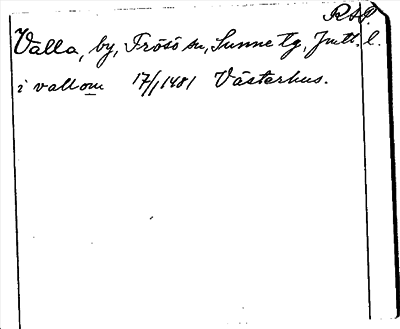 Valla, by, Frösö sn, Sunne tg, Jmtl. l.
i vallom 17/1 1481 Västerhus.